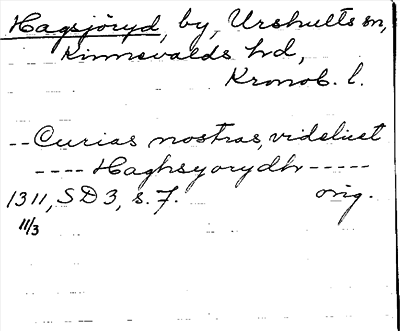 Hagsjöryd, by, Urshults sn,
Kinnevalds hd,
Kronob. l.
-- Curias nostras, videlicet
---- Haghsyorydh -----
1311, SD 3, s. 7. orig.
11/3